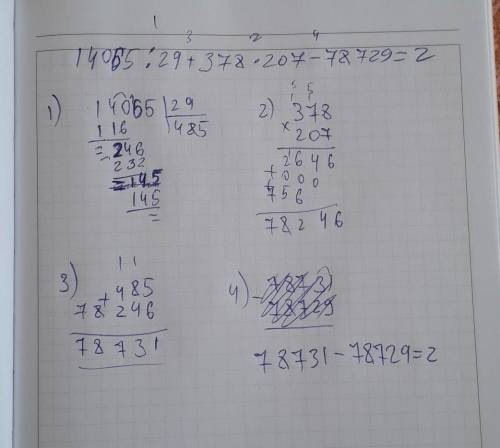 1 3 2 4
14065:29+378·207-78729=2
1) 14065 29
116 485
246
232
145
145
=
2) 5 5
378
× 207
2646
+ 000
756
78246
3) 11
+485
78246
78731
4) - 78731
78729
78731-78729=2